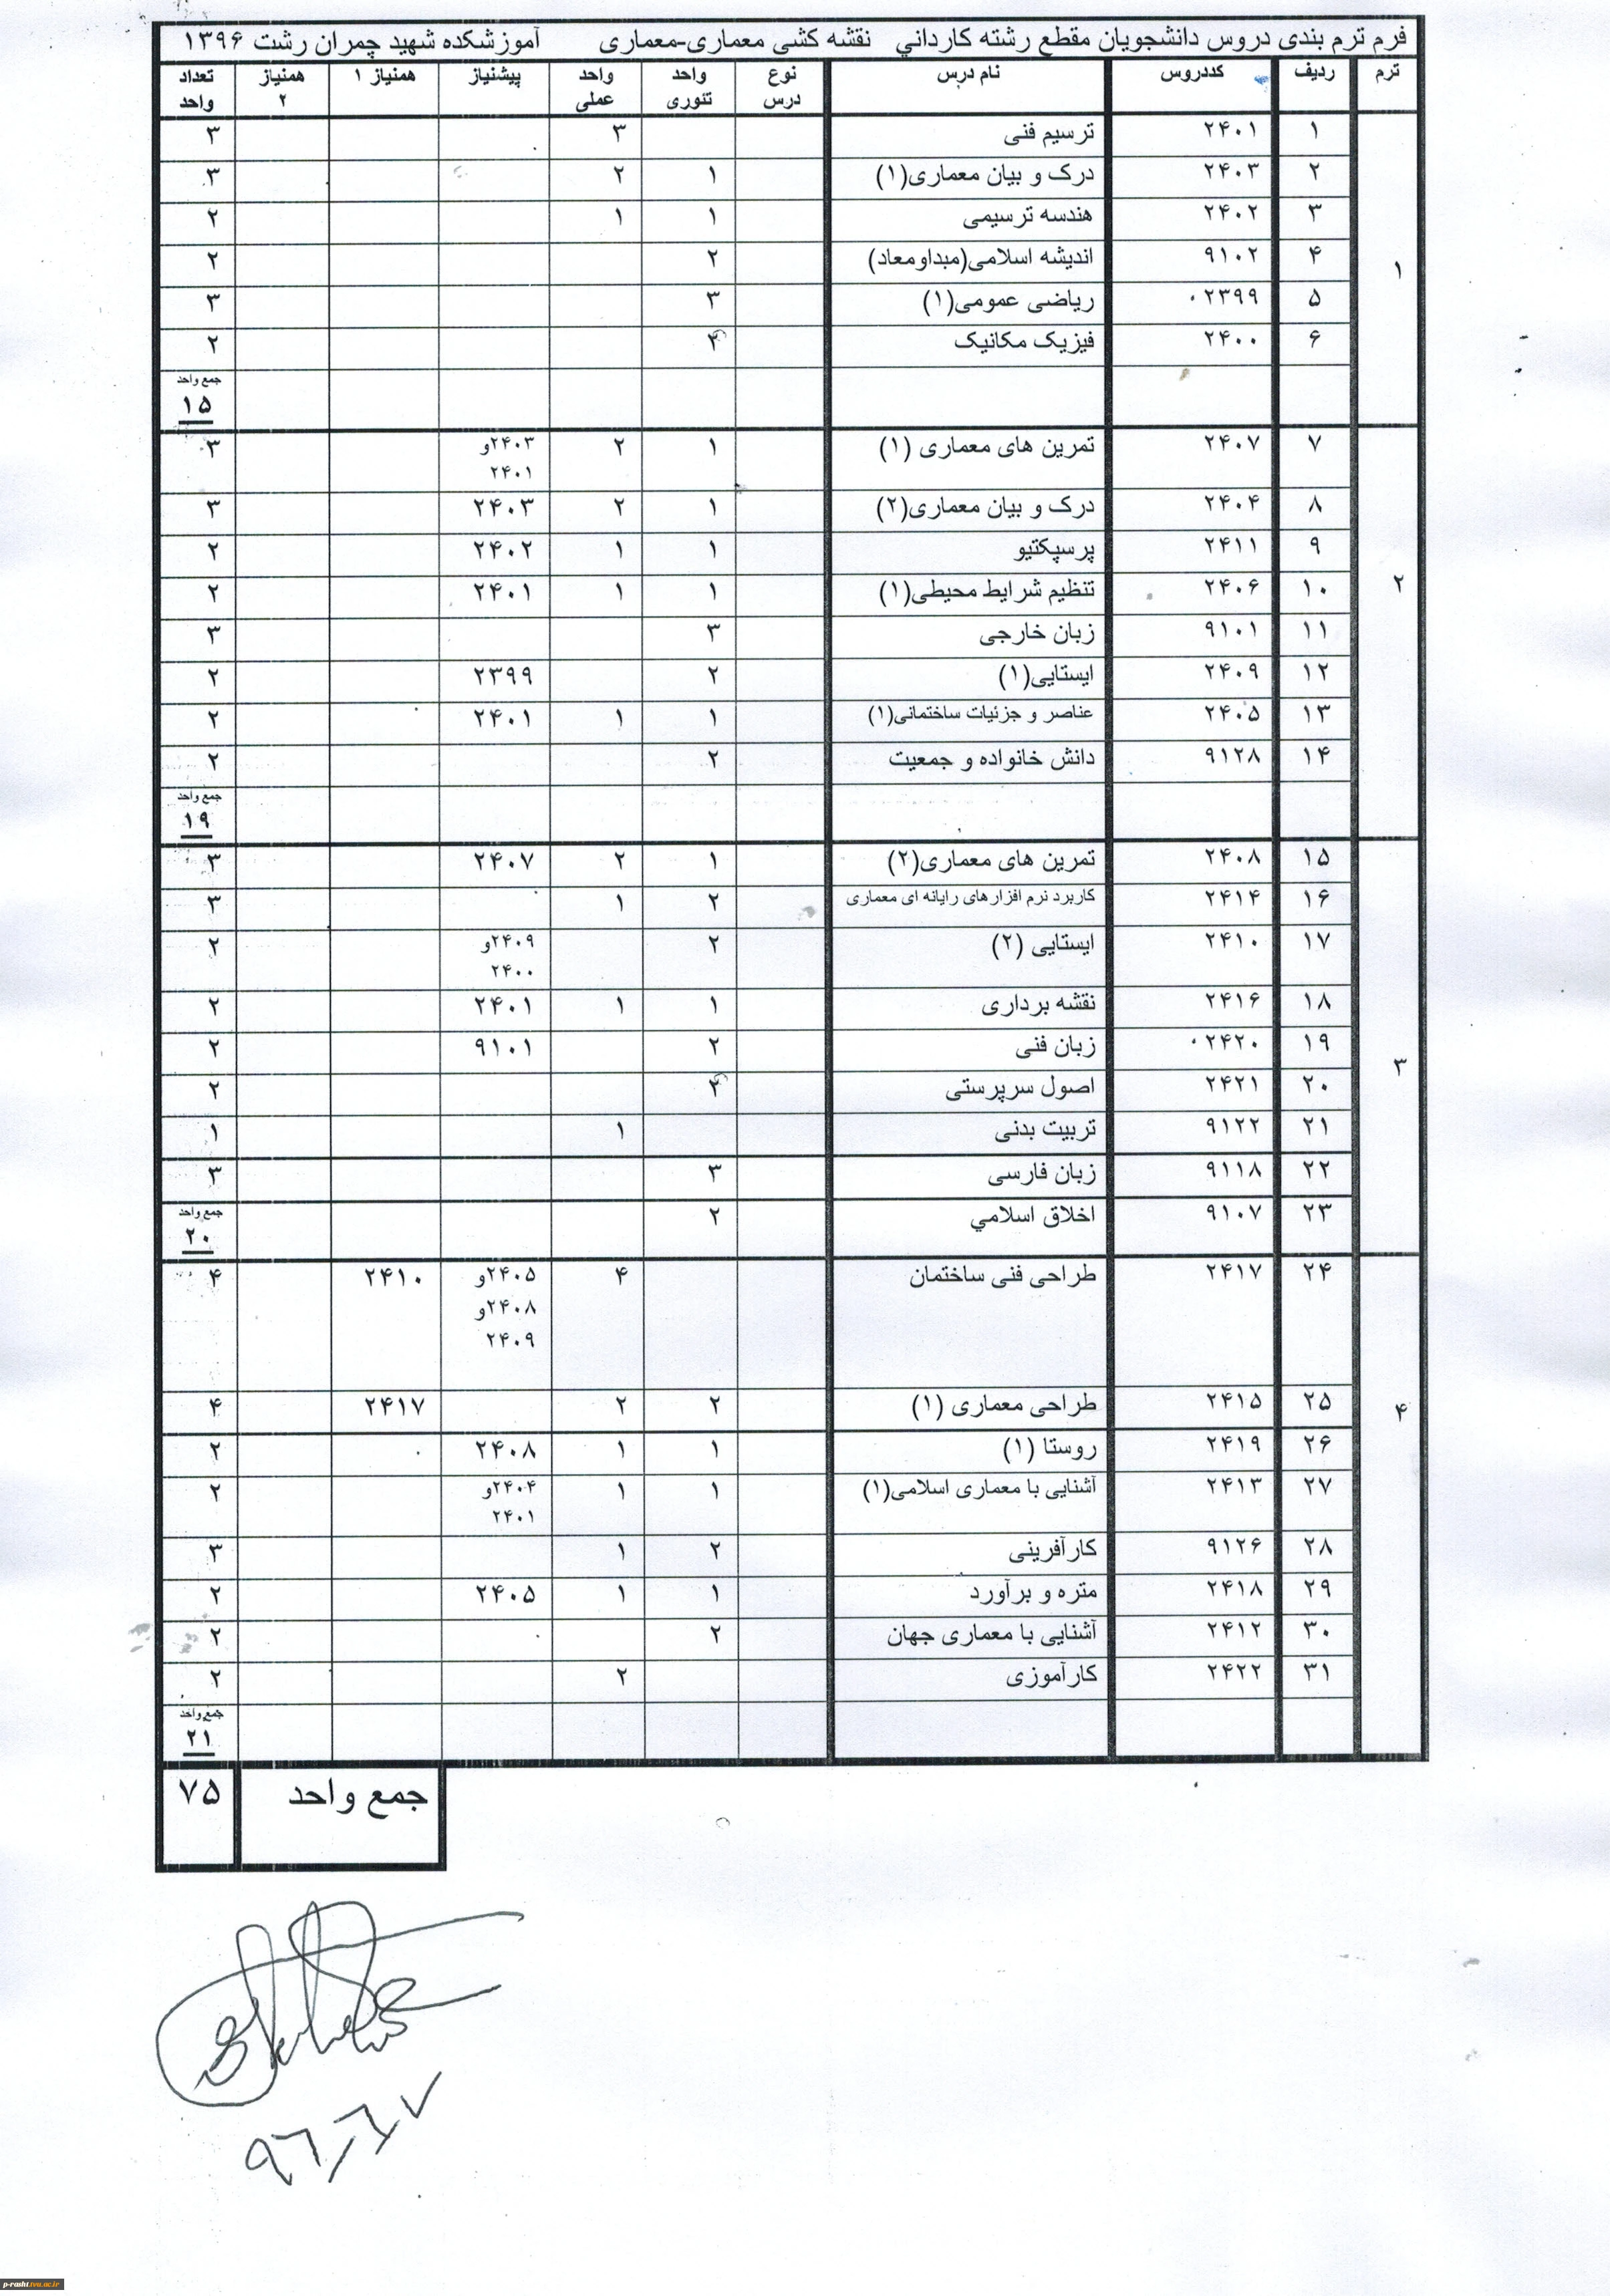 فرم ترم بندی دروس دانشجویان مقطع رشته کارداني نقشه کشی معماری-معماری آموزشکده شهید چمران رشت ۱۳۹۶
ترم ردیف کددروس نام درس نوع درس واحد تئوری واحد عملی پیشنیاز همنیاز ۱ همنیاز ۲ تعداد واحد
۱
۱ ۲۴۰۱ ترسیم فنی ۳ ۳
۲ ۲۴۰۳ درک و بیان معماری(۱) ۱ ۲ ۳
۳ ۲۴۰۲ هندسه ترسیمی ۱ ۱ ۲
۴ ۹۱۰۲ اندیشه اسلامی(مبداومعاد) ۲ ۲
۵ ۰۲۳۹۹ ریاضی عمومی(۱) ۳ ۳
۶ ۲۴۰۰ فیزیک مکانیک ۲ ۲
جمع واحد
۱۵
۲
۷ ۲۴۰۷ تمرین های معماری (۱) ۱ ۲ ۲۴۰۳و ۳
۲۴۰۱
۸ ۲۴۰۴ درک و بیان معماری(۲) ۱ ۲ ۲۴۰۳ ۳
۹ ۲۴۱۱ پرسپکتیو ۱ ۱ ۲۴۰۲ ۲
۱۰ ۲۴۰۶ تنظیم شرایط محیطی(۱) ۱ ۱ ۲۴۰۱ ۲
۱۱ ۹۱۰۱ زبان خارجی ۳ ۳
۱۲ ۲۴۰۹ ایستایی(۱) ۲ ۲۳۹۹ ۲
۱۳ ۲۴۰۵ عناصر و جزئیات ساختمانی(۱) ۱ ۱ ۲۴۰۱ ۲
۱۴ ۹۱۲۸ دانش خانواده و جمعیت ۲ ۲
جمع واحد
۱۹
۳
۱۵ ۲۴۰۸ تمرین های معماری(۲) ۱ ۲ ۲۴۰۷ ۳
۱۶ ۲۴۱۴ کاربرد نرم افزارهای رایانه ای معماری ۲ ۱ ۳
۱۷ ۲۴۱۰ ایستایی (۲) ۲ ۲۴۰۹و ۲
۲۴۰۰
۱۸ ۲۴۱۶ نقشه برداری ۱ ۱ ۲۴۰۱ ۲
۱۹ ۰۲۴۲۰ زبان فنی ۲ ۹۱۰۱ ۲
۲۰ ۲۴۲۱ اصول سرپرستی ۲ ۲
۲۱ ۹۱۲۲ تربیت بدنی ۱ ۱
۲۲ ۹۱۱۸ زبان فارسی ۳ ۳
۲۳ ۹۱۰۷ اخلاق اسلامي ۲ جمع واحد
۲۰
۴
۲۴ ۲۴۱۷ طراحی فنی ساختمان ۴ ۲۴۰۵و ۲۴۱۰ ۴
۲۴۰۸و
۲۴۰۹
۲۵ ۲۴۱۵ طراحی معماری (۱) ۲ ۲ ۲۴۱۷ ۴
۲۶ ۲۴۱۹ روستا (۱) ۱ ۱ ۲۴۰۸ ۲
۲۷ ۲۴۱۳ آشنایی با معماری اسلامی(۱) ۱ ۱ ۲۴۰۴و ۲
۲۴۰۱
۲۸ ۹۱۲۶ کارآفرینی ۲ ۱ ۳
۲۹ ۲۴۱۸ متره و برآورد ۱ ۱ ۲۴۰۵ ۲
۳۰ ۲۴۱۲ آشنایی با معماری جهان ۲ ۲
۳۱ ۲۴۲۲ کارآموزی ۲ ۲
جمع واحد
۲۱
جمع واحد ۷۵
p-rasht.tvu.ac.ir